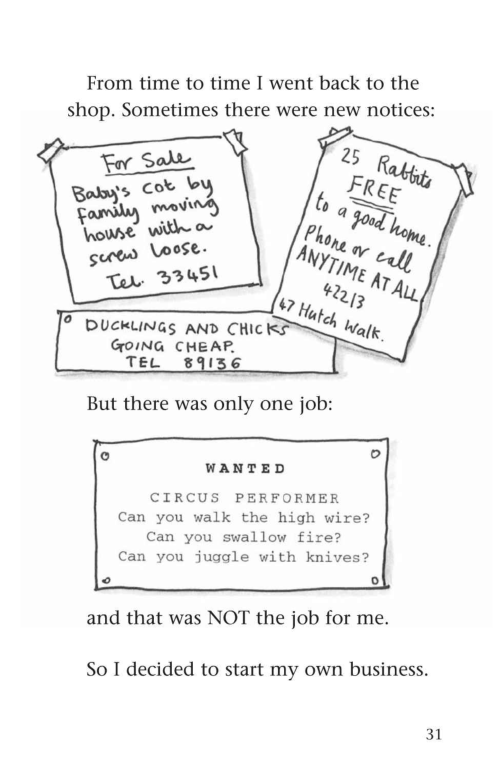 From time to time I went back to the
shop. Sometimes there were new notices:
For Sale
Baby's cot by
family moving
house with a
screw loose.
Tel. 33451
25 Rabbits
FREE
to a good home.
Phone or call
ANYTIME AT ALL
42213
47 Hutch Walk.
DUCKLINGS AND CHICKS
GOING CHEAP.
TEL 89136
But there was only one job:
WANTED
CIRCUS PERFORMER
Can you walk the high wire?
Can you swallow fire?
Can you juggle with knives?
and that was NOT the job for me.
So I decided to start my own business.
31